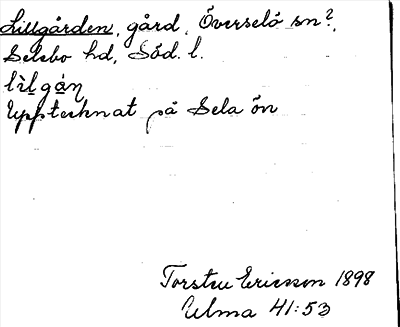 Lillgården, gård, Överselö sn?,
Selebo hd, Söd. l.
lìlgá̱ņ
Upptecknat på Sela ön
Torsten Ericsson 1898
Ulma 41:53